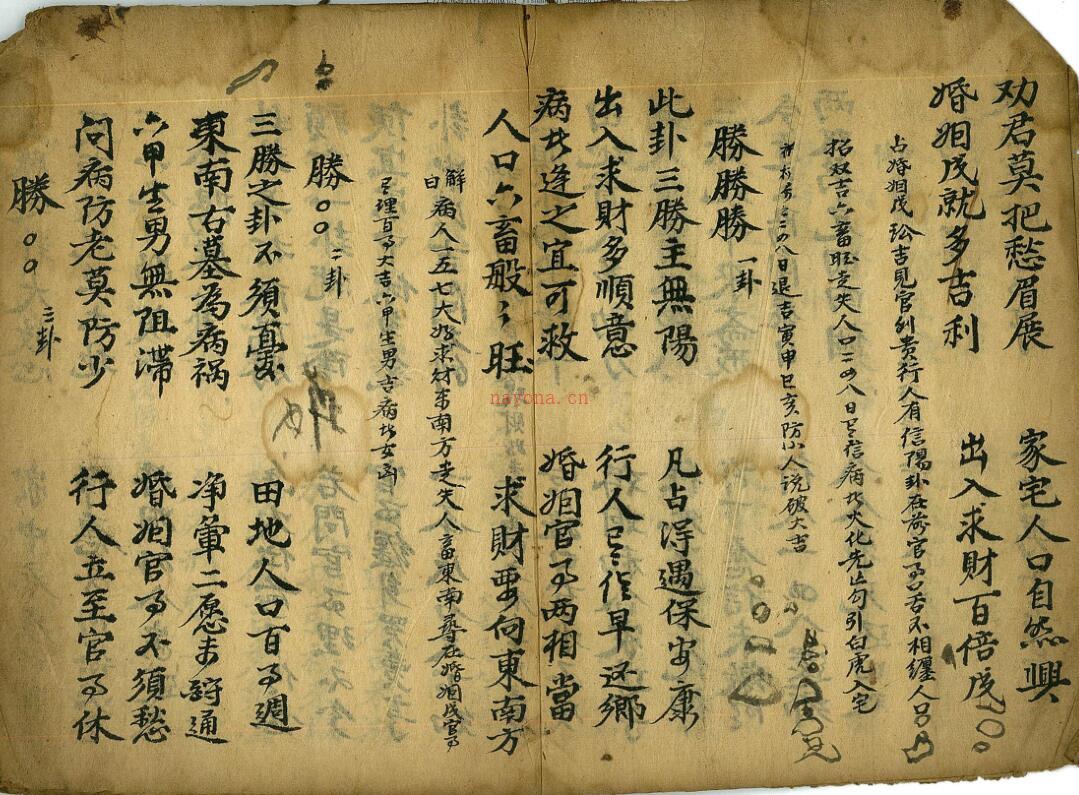 劝君莫把愁眉展 家宅人口自然興
婚姻成就多吉利 出入求財百倍成
占婚姻成 訟吉見官到贵行人有信陽卦在前官事口舌不相纏人口
招双吉六畜旺走失人口二四八日 信病 火化先 勾引白虎入宅
二四八日退吉寅申巳亥防小人说破大吉
勝勝勝 一卦
此卦三勝主無陽 凡占浔遇保安康
出入求財多順意 行人 信早还鄉
病 逢之宜可救 婚姻官事两相當
人口六畜般々旺 求財要向東南方
解曰 病人一五七大 求財東南方走失人畜東南尋在婚姻成官事
理百事大吉六甲生男吉病 女 
勝○○ 二卦
三勝之卦不須 田地人口百事週
東南古墓為病祸 净 二愿未 通
六甲生男無阻滞 婚姻官事不須愁
问病防老莫防少 行人立至官事休
勝○○ 三卦
nayona.cn